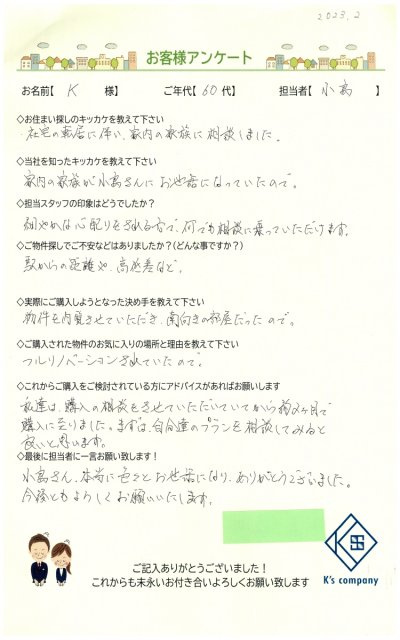 2023.2
お客様アンケート
お名前【 K 様】 ご年代【 60 代】 担当者【 小高 】
◇お住まい探しのキッカケを教えて下さい
・社宅の転居に伴い、家内の家族に相談しました。
◇当社を知ったキッカケを教えて下さい
家内の家族が小高さんにお世話になっていたので。
◇担当スタッフの印象はどうでしたか？
細やかな心配りをされる方で、何でも相談に乗っていただけます。
◇ご物件探しでご不安などはありましたか？(どんな事ですか？)
駅からの距離や、高低差など。
◇実際にご購入しようとなった決め手を教えて下さい
物件を内覧させていただき、南向きの部屋だったので。
◇ご購入された物件のお気に入りの場所と理由を教えて下さい
フルリノベーションされていたので。
◇これからご購入をご検討されている方にアドバイスがあればお願いします
私達は、購入の相談をさせていただいていてから約2ヶ月で
購入に至りました。まずは、自分達のプランを相談してみると
良いと思います。
◇最後に担当者に一言お願い致します！
小高さん、本当に色々とお世話になり、ありがとうございました。
今後ともよろしくお願いいたします。
ご記入ありがとうございました！
これからも末永いお付き合いよろしくお願い致します
K's company